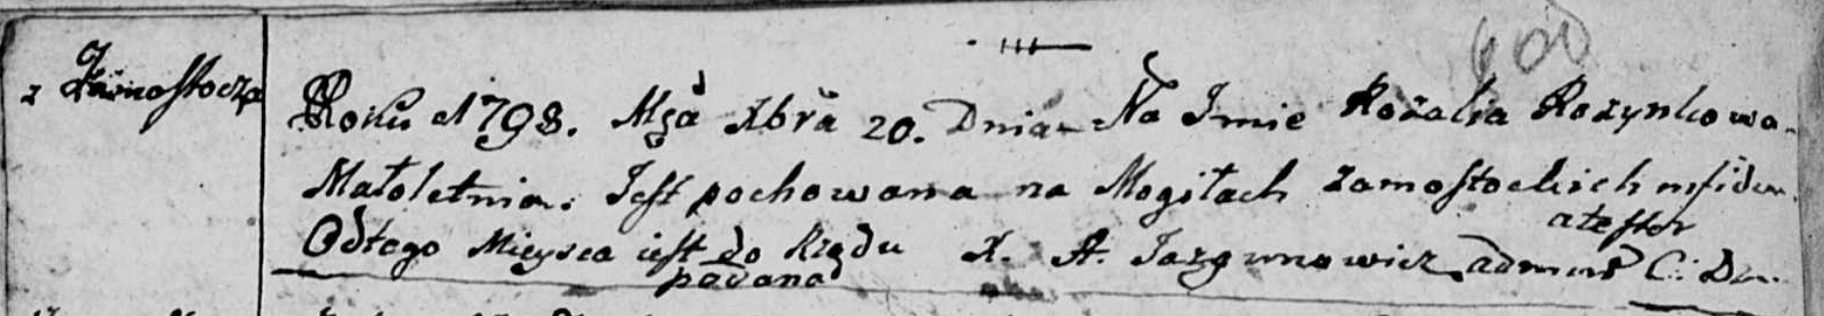 z Zamostocza
Roku 1798. Mca Xbra 20. Dnia Na Imie Rozalia Rozynkowa
Małoletnia. Jest pochowana na Mogiłach Zamostockich
atestor
Odtego Mieysca iest do Rządu X. A. Jazgunowicz
podana